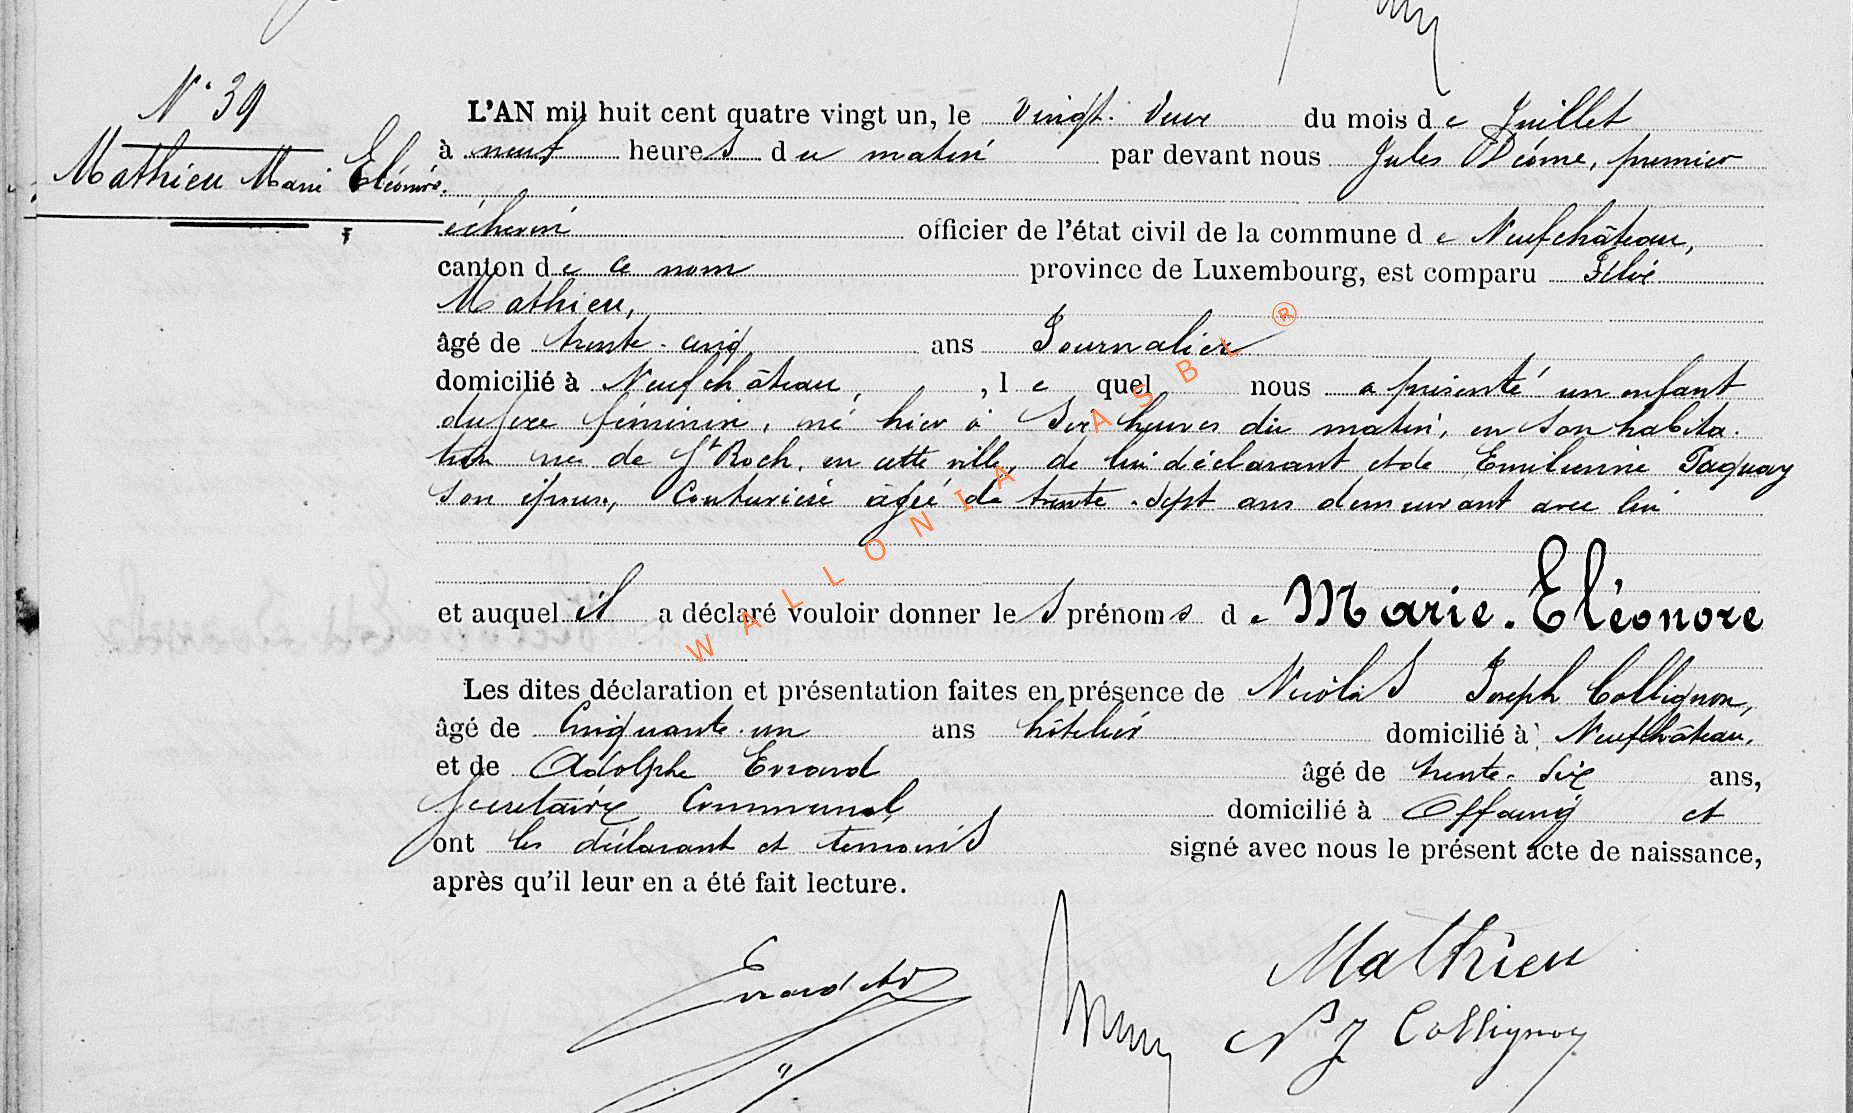 N° 39
Mathieu Marie Eléonore.
L'AN mil huit cent quatre vingt un, le vingt. deux du mois de Juillet
à neuf heures du matin par devant nous Jules premier
échevin officier de l'état civil de la commune de Neufchâteau,
canton de ce nom province de Luxembourg, est comparu
Mathieu,
âgé de trente-cinq ans Journalier
domicilié à Neufchâteau, , lequel nous a présenté un enfant
du sexe féminin, né hier à Six heures du matin, en son habita.
tion rue de St Roch, en cette ville, de lui déclarant et de Emilienne Paquay
son épouse, Couturière âgée de trente-sept ans demeurant avec lui
et auquel il a déclaré vouloir donner les prénoms de Marie-Eléonore
Les dites déclaration et présentation faites en présence de Nicolas Joseph Collignon,
âgé de Cinquante-un ans hôtelier domicilié à Neufchâteau,
et de Adolphe Evrard âgé de trente-six ans,
Secrétaire Communal domicilié à Offaing et
ont les déclarant et témoins signé avec nous le présent acte de naissance,
après qu'il leur en a été fait lecture.
Evrard Ad
Mathieu
N J Collignon
WALLONIA ASBL ®